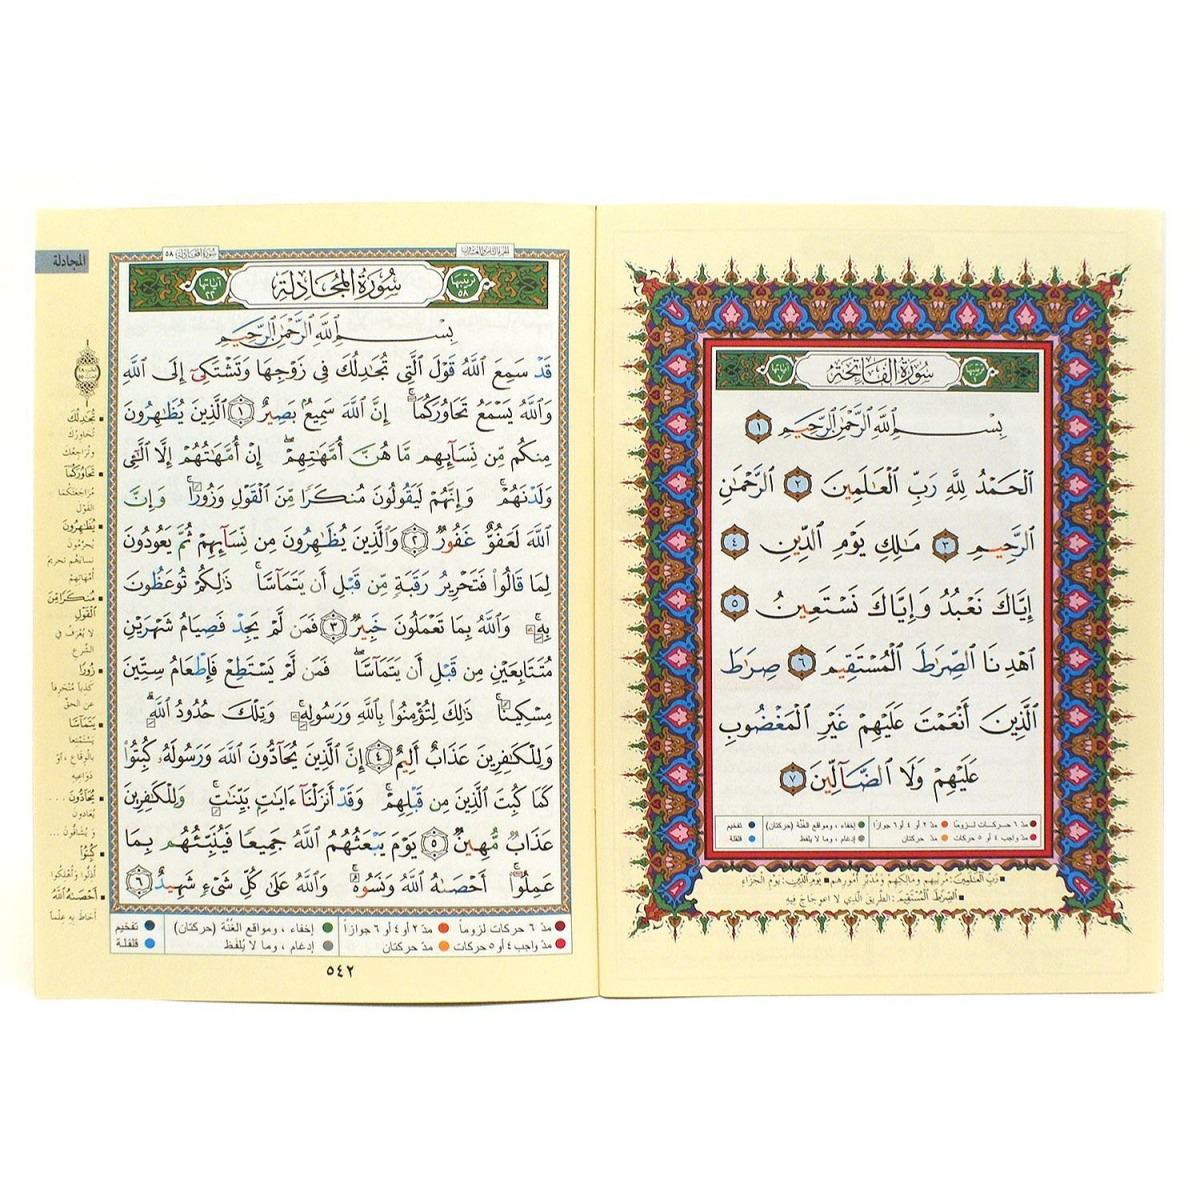 سُورَةُ الفَاتِحَةِ
ترتيبها ١
آياتها ٧
بِسْمِ ٱللَّهِ ٱلرَّحْمَٰنِ ٱلرَّحِيمِ ١
ٱلْحَمْدُ لِلَّهِ رَبِّ ٱلْعَٰلَمِينَ ٢ ٱلرَّحْمَٰنِ
ٱلرَّحِيمِ ٣ مَٰلِكِ يَوْمِ ٱلدِّينِ ٤
إِيَّاكَ نَعْبُدُ وَإِيَّاكَ نَسْتَعِينُ ٥
ٱهْدِنَا ٱلصِّرَٰطَ ٱلْمُسْتَقِيمَ ٦ صِرَٰطَ
ٱلَّذِينَ أَنْعَمْتَ عَلَيْهِمْ غَيْرِ ٱلْمَغْضُوبِ
عَلَيْهِمْ وَلَا ٱلضَّآلِّينَ ٧
مدّ ٦ حركات لزوماً مدّ ٢ أو ٤ أو ٦ جوازاً إخفاء ، ومواقع الغُنَّة (حركتان) تفخيم
مدّ واجب ٤ أو ٥ حركات مدّ حركتان إدغام ، وما لا يُلفَظ قلقلة
رَبِّ الْعَالَمِينَ: مُربِّيهم ومالكهم ومُدبِّر أمورهم يَوْمِ الدِّينِ: يوم الجزاء
الصِّرَاطَ الْمُسْتَقِيمَ: الطريق الذي لا اعوجاج فيه
سُورَةُ المُجَادلَة ٥٨
المجادلة
ترتيبها ٥٨
سُورَةُ المُجَادلَة
آياتها ٢٢
بِسْمِ ٱللَّهِ ٱلرَّحْمَٰنِ ٱلرَّحِيمِ
قَدْ سَمِعَ ٱللَّهُ قَوْلَ ٱلَّتِى تُجَٰدِلُكَ فِى زَوْجِهَا وَتَشْتَكِىٓ إِلَى ٱللَّهِ
وَٱللَّهُ يَسْمَعُ تَحَاوُرَكُمَآ ۚ إِنَّ ٱللَّهَ سَمِيعٌۢ بَصِيرٌ ١ ٱلَّذِينَ يُظَٰهِرُونَ
مِنكُم مِّن نِّسَآئِهِم مَّا هُنَّ أُمَّهَٰتِهِمْ ۖ إِنْ أُمَّهَٰتُهُمْ إِلَّا ٱلَّٰٓـِٔى
وَلَدْنَهُمْ ۚ وَإِنَّهُمْ لَيَقُولُونَ مُنكَرًا مِّنَ ٱلْقَوْلِ وَزُورًا ۚ وَإِنَّ
ٱللَّهَ لَعَفُوٌّ غَفُورٌ ٢ وَٱلَّذِينَ يُظَٰهِرُونَ مِن نِّسَآئِهِمْ ثُمَّ يَعُودُونَ
لِمَا قَالُوا۟ فَتَحْرِيرُ رَقَبَةٍ مِّن قَبْلِ أَن يَتَمَآسَّا ۚ ذَٰلِكُمْ تُوعَظُونَ
بِهِۦ ۚ وَٱللَّهُ بِمَا تَعْمَلُونَ خَبِيرٌ ٣ فَمَن لَّمْ يَجِدْ فَصِيَامُ شَهْرَيْنِ
مُتَتَابِعَيْنِ مِن قَبْلِ أَن يَتَمَآسَّا ۖ فَمَن لَّمْ يَسْتَطِعْ فَإِطْعَامُ سِتِّينَ
مِسْكِينًا ۚ ذَٰلِكَ لِتُؤْمِنُوا۟ بِٱللَّهِ وَرَسُولِهِۦ ۚ وَتِلْكَ حُدُودُ ٱللَّهِ ۗ
وَلِلْكَٰفِرِينَ عَذَابٌ أَلِيمٌ ٤ إِنَّ ٱلَّذِينَ يُحَآدُّونَ ٱللَّهَ وَرَسُولَهُۥ كُبِتُوا۟
كَمَا كُبِتَ ٱلَّذِينَ مِن قَبْلِهِمْ ۚ وَقَدْ أَنزَلْنَآ ءَايَٰتٍۭ بَيِّنَٰتٍ ۚ وَلِلْكَٰفِرِينَ
عَذَابٌ مُّهِينٌ ٥ يَوْمَ يَبْعَثُهُمُ ٱللَّهُ جَمِيعًا فَيُنَبِّئُهُم بِمَا
عَمِلُوٓا۟ ۚ أَحْصَىٰهُ ٱللَّهُ وَنَسُوهُ ۚ وَٱللَّهُ عَلَىٰ كُلِّ شَىْءٍ شَهِيدٌ ٦
تُجَادِلُكَ
تُحاوِرُك
وتُراجِعُك
تَحَاوُرَكُمَا
مُراجَعَتَكُما ..
القَوْل
يُظَاهِرُونَ
يُحرِّمون
نساءَهُم تحريم
أُمّهاتِهِم
مُنكَرًا مِّنَ
الْقَوْلِ
لا يُعْرَفُ في
الشَّرعِ
زُورًا
كذباً مُنْحَرِفاً
عن الحقّ
يَتَمَاسَّا
يَسْتَمْتِعا
بالوِقاعِ ، أوْ
دَواعيه
يُحَادُّونَ ...
يُعادون
و يُشاقّون ...
كُبِتُوا
أُذِلُّوا و أُهْلِكوا
أَحْصَاهُ اللَّهُ
أحَاطَ بِهِ عِلْماً
مدّ ٦ حركات لزوماً مدّ ٢ أو ٤ أو ٦ جوازاً إخفاء ، ومواقع الغُنَّة (حركتان) تفخيم
مدّ واجب ٤ أو ٥ حركات مدّ حركتان إدغام ، وما لا يُلفَظ قلقلة
٥٤٢